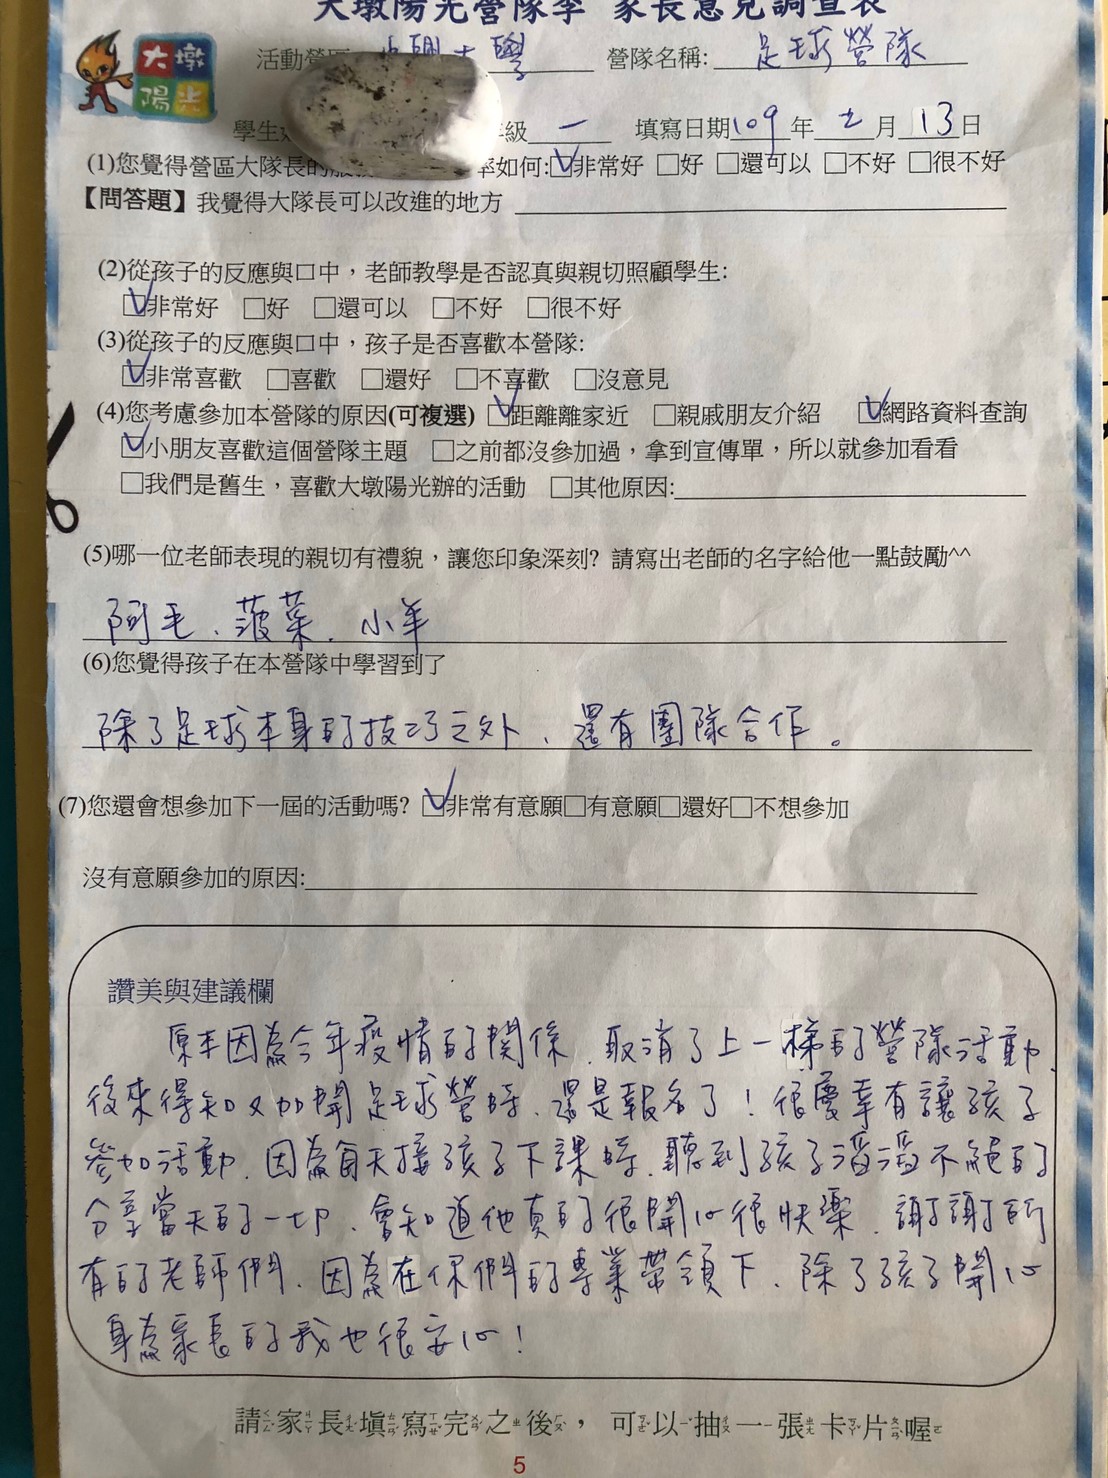 大墩陽光營隊季 家長意見調查表
大墩
陽光
活動營區: 中興大學 營隊名稱: 足球營隊
學生 級 一 填寫日期109年 七 月 13 日
(1)您覺得營區大隊長的服 率如何:☑非常好 □好 □還可以 □不好 □很不好
【問答題】我覺得大隊長可以改進的地方
(2)從孩子的反應與口中,老師教學是否認真與親切照顧學生:
☑非常好 □好 □還可以 □不好 □很不好
(3)從孩子的反應與口中,孩子是否喜歡本營隊:
☑非常喜歡 □喜歡 □還好 □不喜歡 □沒意見
(4)您考慮參加本營隊的原因(可複選) ☑距離離家近 □親戚朋友介紹 ☑網路資料查詢
☑小朋友喜歡這個營隊主題 □之前都沒參加過,拿到宣傳單,所以就參加看看
□我們是舊生,喜歡大墩陽光辦的活動 □其他原因:
(5)哪一位老師表現的親切有禮貌,讓您印象深刻? 請寫出老師的名字給他一點鼓勵^^
阿毛、菠菜、小羊
(6)您覺得孩子在本營隊中學習到了
除了足球本身的技巧之外、還有團隊合作。
(7)您還會想參加下一屆的活動嗎? ☑非常有意願□有意願□還好□不想參加
沒有意願參加的原因:
讚美與建議欄
原本因為今年疫情的關係、取消了上一梯的營隊活動、
後來得知又加開足球營時、還是報名了!很慶幸有讓孩子
參加活動、因為每天接孩子下課時、聽到孩子滔滔不絕的
分享當天的一切、會知道他真的很開心很快樂、謝謝所
有的老師們、因為在你們的專業帶領下、除了孩子開心
身為家長的我也很安心!
請家長填寫完之後, 可以抽一張卡片喔
5